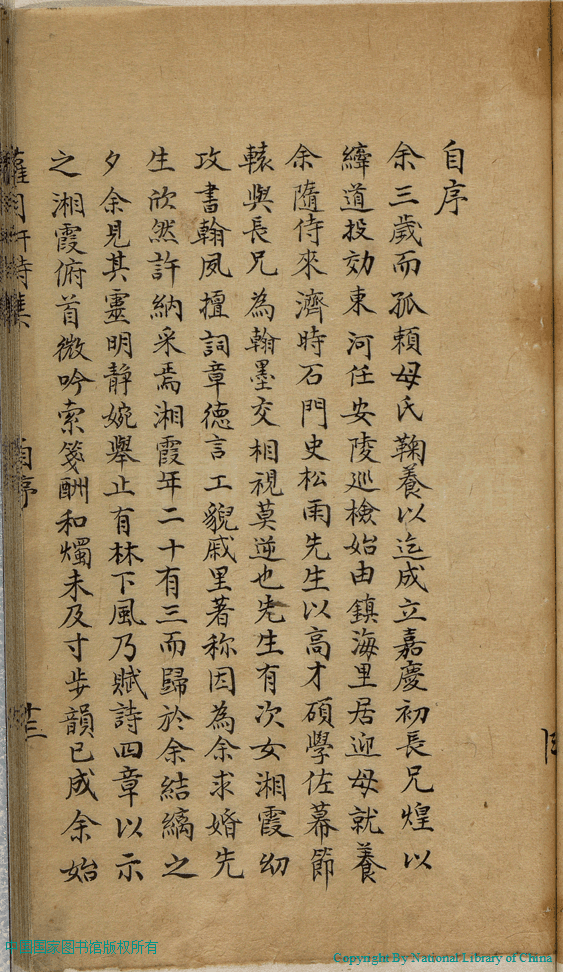 自序
余三歲而孤賴母氏鞠養以迄成立嘉慶初長兄煌以
縴道投効東河任安陵巡檢始由鎮海里居迎母就養
余隨侍來濟時石門史松雨先生以高才碩學佐幕節
轅與長兄為翰墨交相視莫逆也先生有次女湘霞幼
攻書翰夙擅詞章德言工貌戚里著称因為余求婚先
生欣然許納采焉湘霞年二十有三而歸於余結縭之
夕余見其靈明靜婉舉止有林下風乃賦詩四章以示
之湘霞俯首微吟索箋酬和燭未及寸步韻已成余始
自序
十三
中国国家图书馆版权所有
Copyright By National Library of China